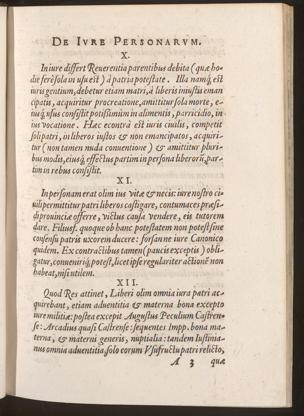 DE IVRE PERSONARVM.
X.
In iure differt Reuerentia parentibus debita (quæ ho-
die ferè sola in usu est) à patria potestate. Illa namq́; est
iuris gentium, debetur etiam matri, à liberis iniustis eman
cipatis, acquiritur procreatione, amittitur sola morte, e-
iusq́; usus consistit potißimùm in alimentis, parricidio, in
ius vocatione. Hæc econtrà est iuris ciuilis, competit
soli patri, in liberos iustos & non emancipatos, acquiri-
tur (non tamen nuda conuentione) & amittitur pluri-
bus modis, eiusq́; effectus partim in persona liberorũ, par-
tim in rebus consistit.
XI.
In personam erat olim ius vitæ & necis: iure nostro ci-
uili permittitur patri liberos castigare, contumaces præsi-
di prouinciæ offerre, victus causa vendere, eis tutorem
dare. Filiusf. quoque ob hanc potestatem non potest sine
consensu patris uxorem ducere: forsan ne iure Canonico
quidem. Ex contractibus tamen (paucis exceptis) obli-
gatur, conueniriq́; potest, licet ipse regulariter actionẽ non
habeat, nisi utilem.
XII.
Quod Res attinet, Liberi olim omnia iura patri ac-
quirebant, etiam aduentitia & materna bona excepto
iure militiæ: postea excepit Augustus Peculium Castren-
se: Arcadius quasi Castrense: sequentes Impp. bona ma-
terna, & materni generis, nuptialia: tandem Iustinia-
nus omnia aduentitia, solo eorum Vsufructu patri relicto,
A 3 quæ